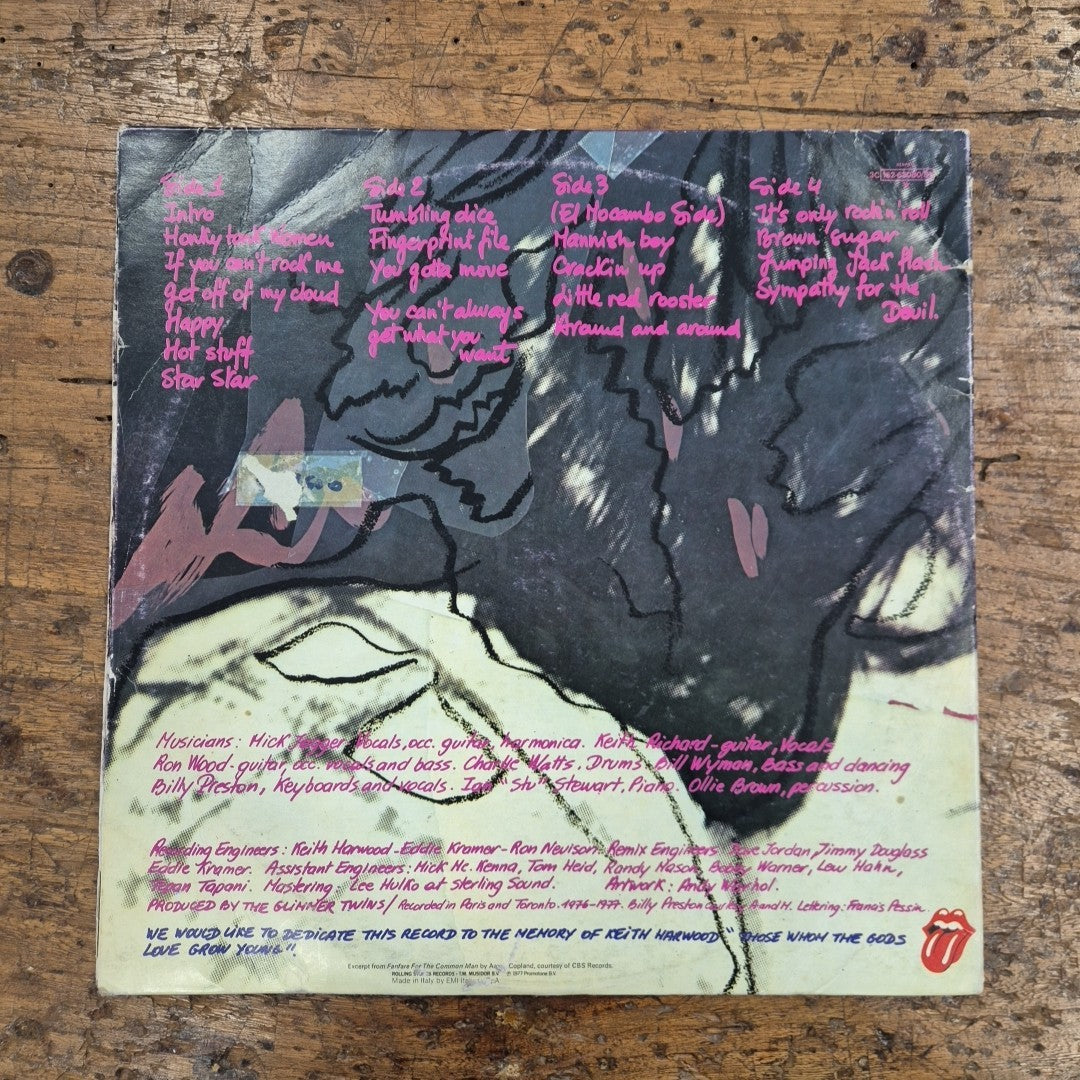 Side 1
Intro
Honky tonk women
If you can't rock me
get off of my cloud
Happy
Hot stuff
Star Star
Side 2
Tumbling dice
Fingerprint file
You gotta move
You can't always
get what you
want
Side 3
(El Mocambo Side)
Mannish boy
Crackin' up
Little red rooster
Around and around
Side 4
It's only rock'n'roll
Brown sugar
Jumping Jack Flash
Sympathy for the
Devil.
Musicians: Mick Jagger Vocals, occ. guitar, harmonica. Keith Richard-guitar, Vocals
Ron Wood-guitar occ. vocals and bass. Charlie Watts, Drums. Bill Wyman, Bass and dancing
Billy Preston, Keyboards and vocals. Ian "Stu" Stewart, Piano. Ollie Brown, percussion.
Recording Engineers: Keith Harwood-Eddie Kramer-Ron Nevison. Remix Engineers: Dave Jordan, Jimmy Douglass
Eddie Kramer. Assistant Engineers: Mick Mc. Kenna, Tom Heid, Randy Mason, Bobby Warner, Lew Hahn,
Tapani. Mastering: Lee Hulko at Sterling Sound. Artwork: Andy Warhol.
PRODUCED BY THE GLIMMER TWINS / Recorded in Paris and Toronto. 1976-1977. Billy Preston A and M. Lettering: Francis Pessin
WE WOULD LIKE TO DEDICATE THIS RECORD TO THE MEMORY OF KEITH HARWOOD "THOSE WHOM THE GODS
LOVE GROW YOUNG".
Excerpt from Fanfare For The Common Man by Aaron Copland, courtesy of CBS Records.
ROLLING STONES RECORDS - T.M. MUSIDOR B.V. ℗ 1977 Promotone B.V.
Made in Italy by EMI